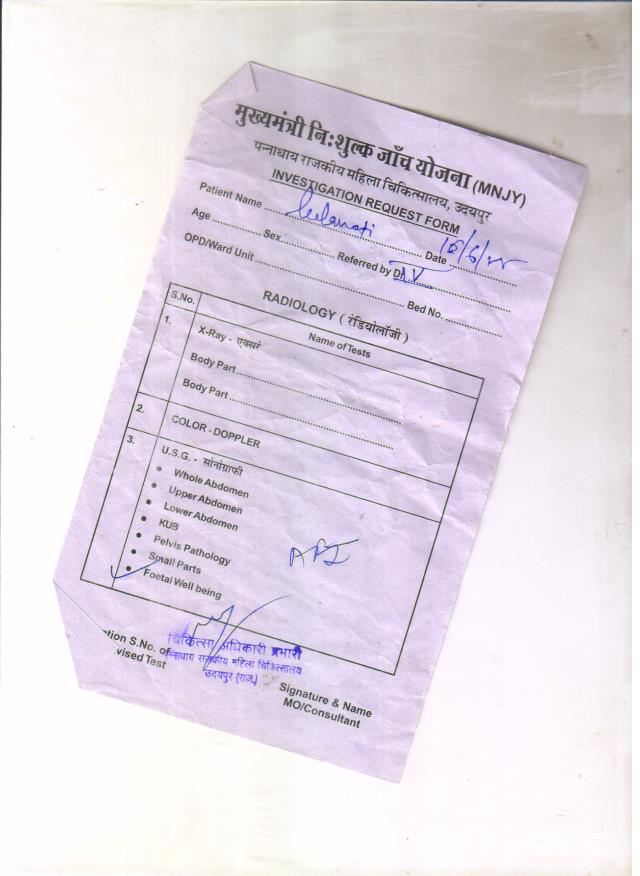 मुख्यमंत्री निःशुल्क जाँच योजना (MNJY)
पन्नाधाय राजकीय महिला चिकित्सालय, उदयपुर
INVESTIGATION REQUEST FORM
Patient Name ............ Date ............
Age ............ Sex............ Referred by Dr. A.V.
OPD/Ward Unit ............ Bed No. ............
RADIOLOGY ( रेडियोलॉजी )
S.No. Name of Tests
1. X-Ray - एक्सरे
Body Part ............
Body Part ............
2. COLOR - DOPPLER
3. U.S.G. - सोनोग्राफी
• Whole Abdomen
• Upper Abdomen
• Lower Abdomen
• KUB
• Pelvis Pathology
• Small Parts
• Foetal Well being
tion S.No. of
vised Test
चिकित्सा अधिकारी प्रभारी
पन्नाधाय राजकीय महिला चिकित्सालय
उदयपुर (राज.)
Signature & Name
MO/Consultant